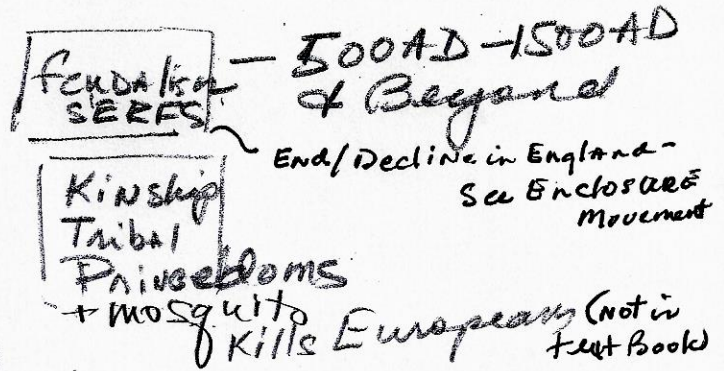 Feudalism — 500AD – 1500AD
SERFS & Beyond
End/Decline in England –
See Enclosure
Movement
Kinship
Tribal
Princedoms
+ mosquito
Kills Europeans (Not in
text Book)